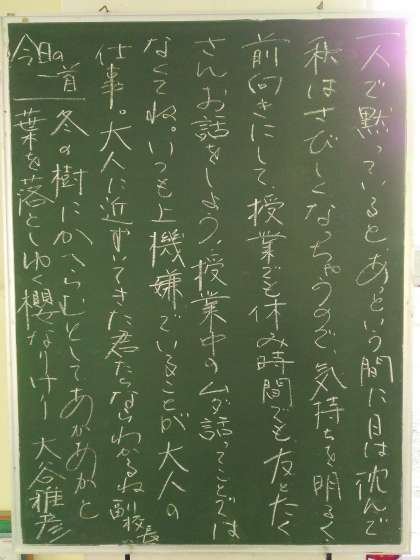 一人で黙っているとあっという間に日は沈んで
秋はさびしくなっちゃうので、気持ちを明るく、
前向きにして、授業でも休み時間でも友とたく
さんお話をしよう、授業中のムダ話ってことでは
なくてね。いつも上機嫌でいることが大人の
仕事。大人に近ずいてきた君たちならわかるね 副校長
今日の一首 冬の樹にかへらむとしてあかあかと
葉を落としゆく櫻なりけり 大谷雅彦